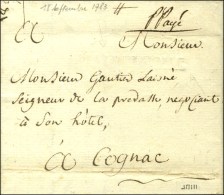 18 septembre 1780
PPayé
A Monsieur
Monsieur Gautier Laisné
Seigneur de la pradasse, négociant
à Son hôtel,
à Cognac